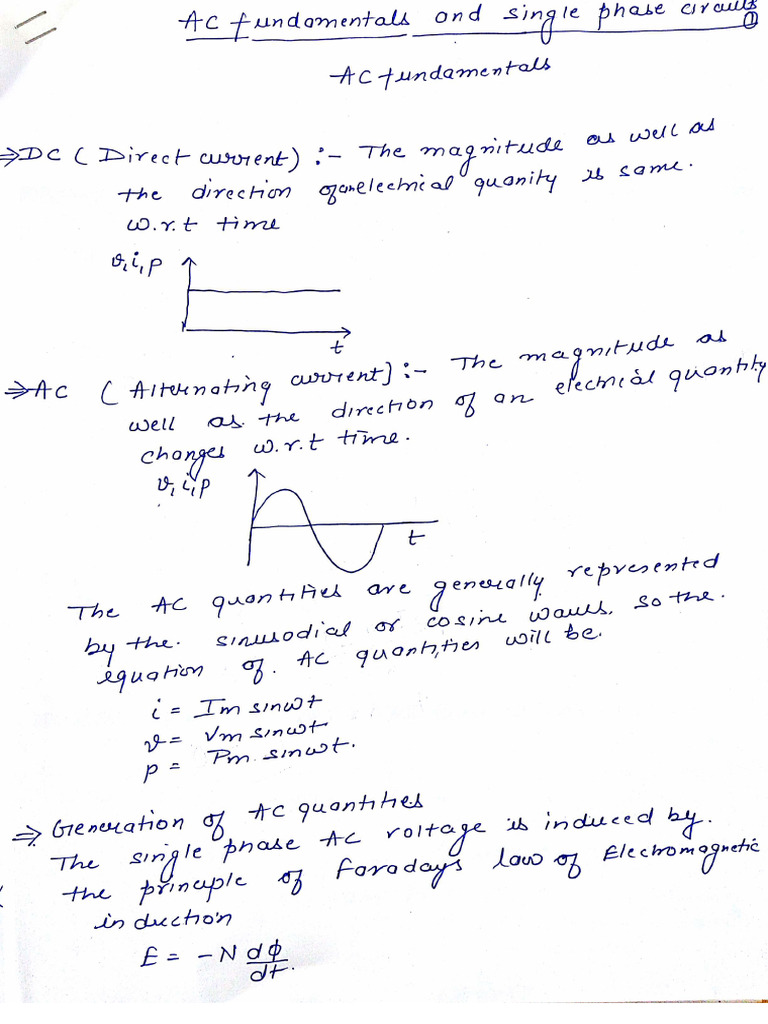 AC fundamentals and single phase circuits
①
AC fundamentals
⇒ DC ( Direct current) :- The magnitude as well as
the direction of an electrical quanity is same.
w.r.t time
v, i, p
t
⇒ AC ( Alternating current) :- The magnitude as
well as the direction of an electrical quantity
changes w.r.t time.
v, i, p
t
The AC quantities are generally represented
by the sinusodial or cosine waves. so the.
equation of. AC quantities will be.
i = Im sinωt
v = Vm sinωt
p = Pm. sinωt.
⇒ Generation of AC quantities
The single phase AC voltage is induced by.
the principle of Faradays law of Electromagnetic
induction
E = -N dϕ/dt.